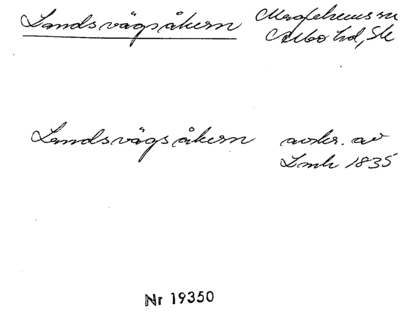 Landsvägsåkern Maglehems sn
Albo hd, Sk
Landsvägsåkern avskr. av
Lmk 1835
Nr 19350